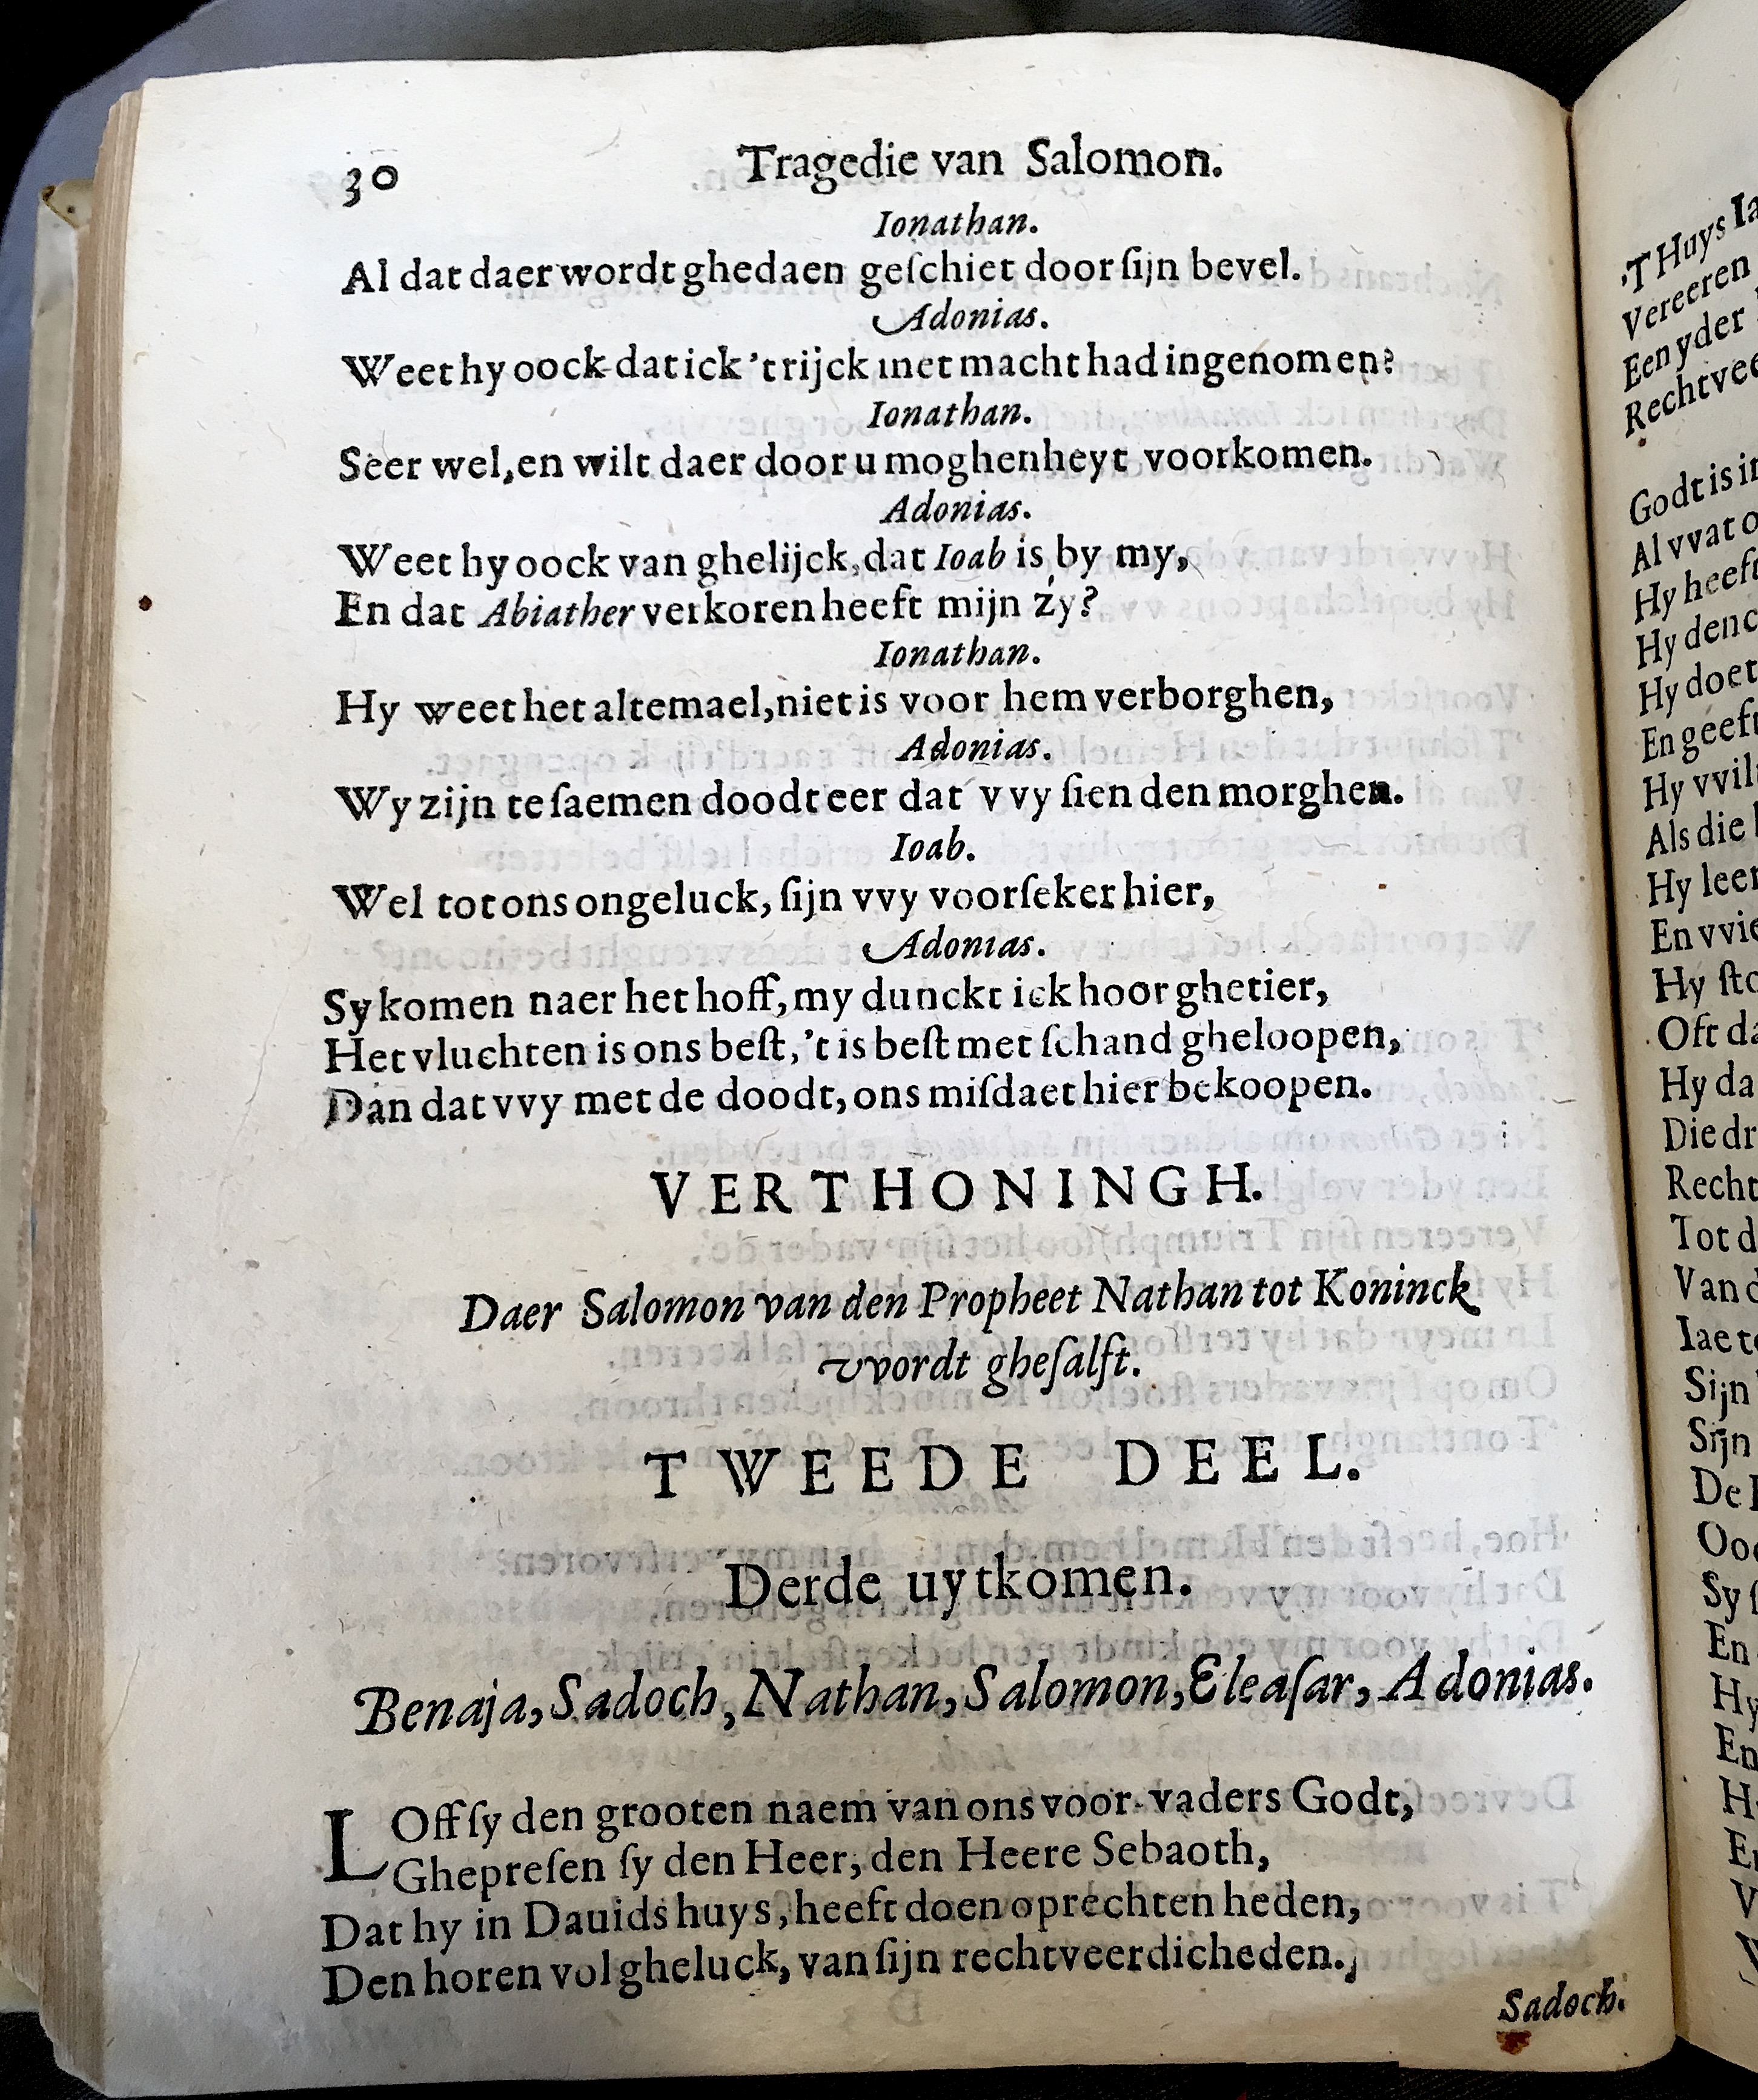 30 Tragedie van Salomon.
Ionathan.
Al dat daer wordt ghedaen geſchiet door ſijn bevel.
Adonias.
Weet hy oock dat ick 't rijck met macht had ingenomen?
Ionathan.
Seer wel, en wilt daer door u moghenheyt voorkomen.
Adonias.
Weet hy oock van ghelijck, dat Ioab is by my,
En dat Abiather verkoren heeft mijn zy?
Ionathan.
Hy weet het altemael, niet is voor hem verborghen,
Adonias.
Wy zijn te ſaemen doodt eer dat vvy ſien den morghen.
Ioab.
Wel tot ons ongeluck, ſijn vvy voorſeker hier,
Adonias.
Sy komen naer het hoff, my dunckt ick hoor ghetier,
Het vluchten is ons beſt, 't is beſt met ſchand gheloopen,
Dan dat vvy met de doodt, ons miſdaet hier bekoopen.
VERTHONINGH.
Daer Salomon van den Propheet Nathan tot Koninck
vvordt gheſalft.
TWEEDE DEEL.
Derde uytkomen.
Benaja, Sadoch, Nathan, Salomon, Eleaſar, Adonias.
LOff ſy den grooten naem van ons voor-vaders Godt,
Ghepreſen ſy den Heer, den Heere Sebaoth,
Dat hy in Dauids huys, heeft doen oprechten heden,
Den horen vol gheluck, van ſijn rechtveerdicheden.
Sadoch.
'T Huys
Vereeren
Een yder
Godt is
Al vvat
Hy heeft
Hy
Hy doet
En geeft
Hy
Als die
Hy
En
Hy
Oft
Hy
Die
Tot
Van
Iae
Sijn
Sijn
De
Sy
En
Hy